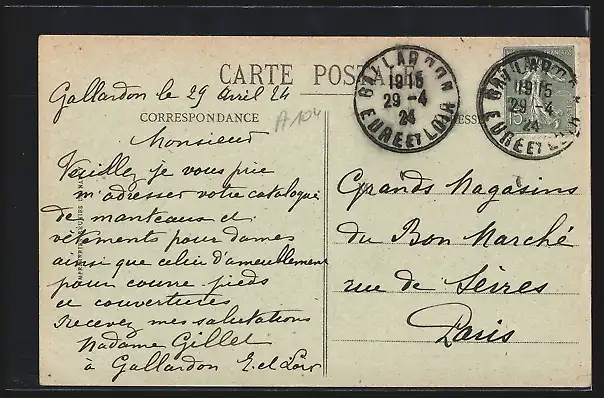 CARTE POSTALE
Gallardon le 29 Avril 24
A 104
CORRESPONDANCE
Monsieur
Veuillez je vous prie
m'adresser votre catalogue
de manteaux et
vêtements pour dames
ainsi que celui d'ameublement
pour couvre pieds
et couvertures
Recevez mes salutations
Madame Gillet
à Gallardon E. et Loir
GALLARDON
19 15
29 -4
24
EURE ET LOIR
GALLARDON
19 15
29 -4
24
EURE ET LOIR
15
Grands Magasins
du Bon Marché
rue de Sèvres
Paris